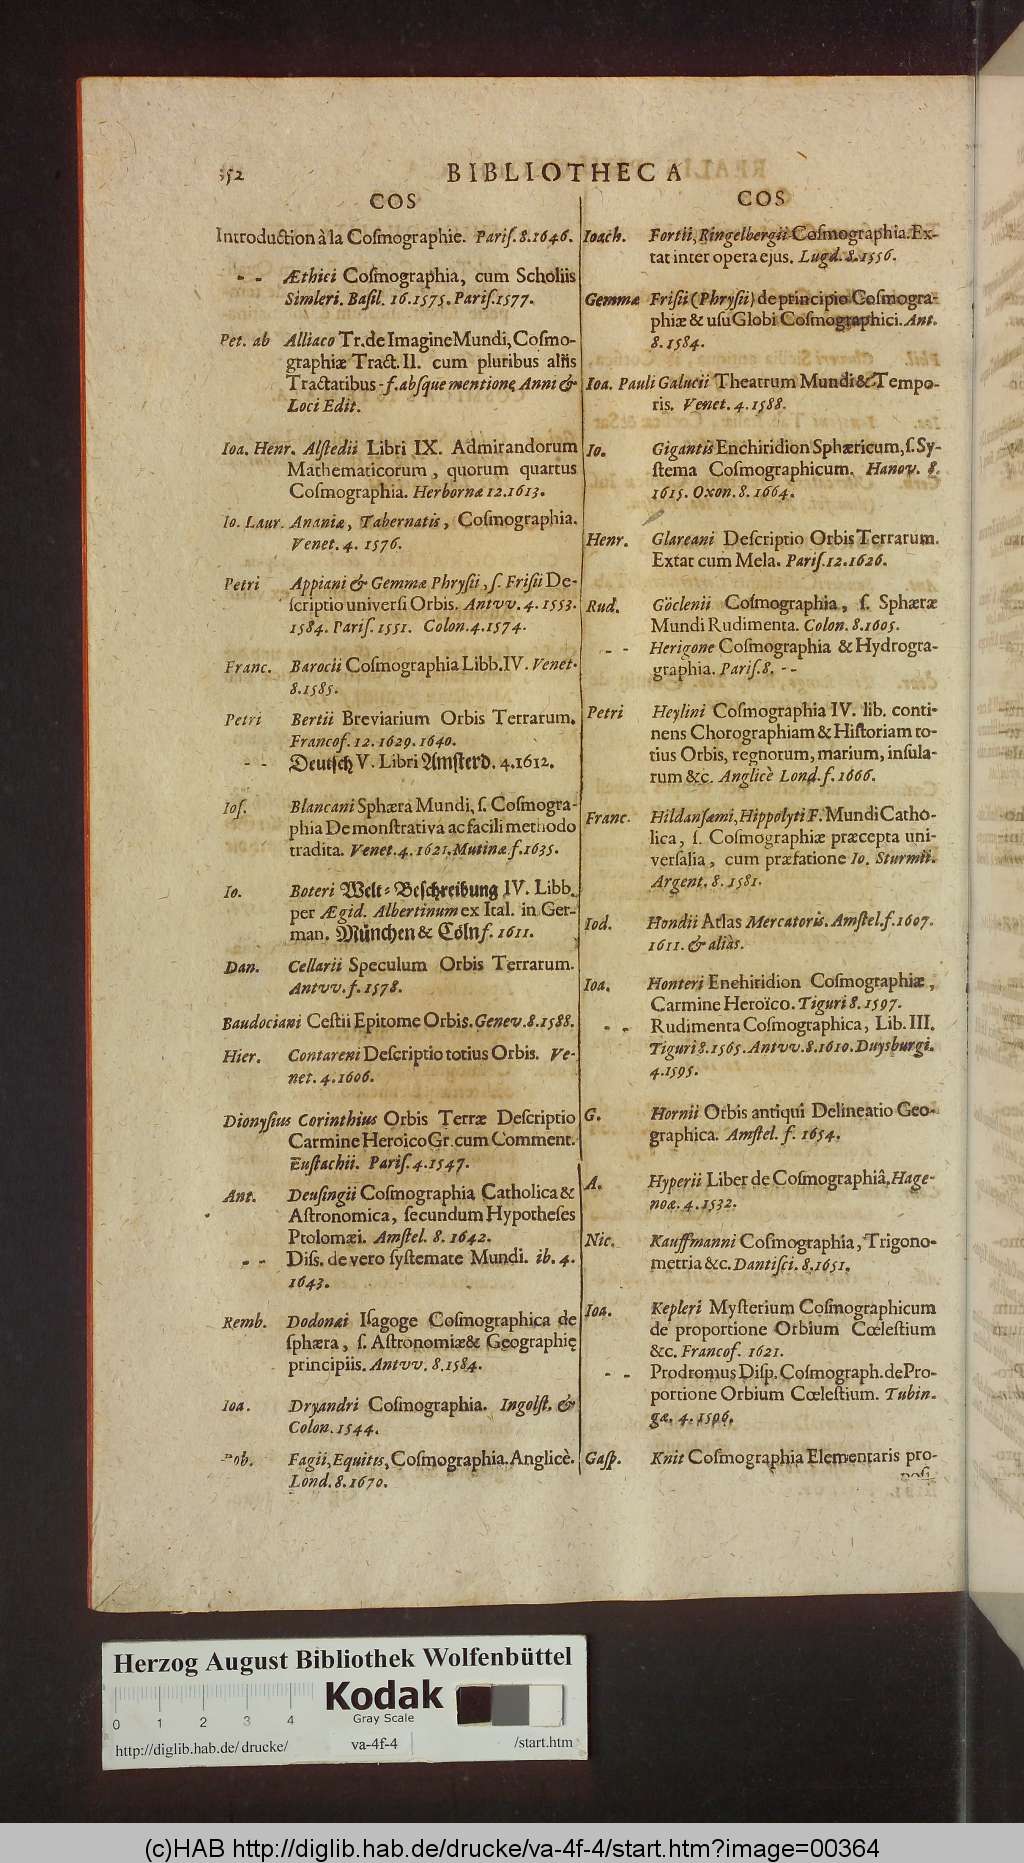 352
BIBLIOTHECA
COS
Introduction à la Coſmographie. Pariſ. 8. 1646.
- - Æthici Coſmographia, cum Scholiis
Simleri. Baſil. 16. 1575. Pariſ. 1577.
Pet. ab Alliaco Tr. de Imagine Mundi, Coſmo-
graphiæ Tract. II. cum pluribus aliis
Tractatibus - f. abſque mentione Anni &
Loci Edit.
Ioa. Henr. Alſtedii Libri IX. Admirandorum
Mathematicorum, quorum quartus
Coſmographia. Herbornæ 12. 1613.
Io. Laur. Ananiæ, Tabernatis, Coſmographia.
Venet. 4. 1576.
Petri Appiani & Gemmæ Phryſii, ſ. Friſii De-
ſcriptio universi Orbis. Antvv. 4. 1553.
1584. Pariſ. 1551. Colon. 4. 1574.
Franc. Barocii Coſmographia Libb. IV. Venet.
8. 1585.
Petri Bertii Breviarium Orbis Terrarum.
Francof. 12. 1629. 1640.
- - Deutſch V. Libri Amſterd. 4. 1612.
Ioſ. Blancani Sphæra Mundi, ſ. Coſmogra-
phia Demonſtrativa ac facili methodo
tradita. Venet. 4. 1621. Mutinæ f. 1635.
Io. Boteri Welt-Beſchreibung IV. Libb.
per Ægid. Albertinum ex Ital. in Ger-
man. München & Cöln f. 1611.
Dan. Cellarii Speculum Orbis Terrarum.
Antvv. f. 1578.
Baudociani Ceſtii Epitome Orbis. Genev. 8. 1588.
Hier. Contareni Deſcriptio totius Orbis. Ve-
net. 4. 1606.
Dionyſius Corinthius Orbis Terræ Deſcriptio
Carmine Heroico Gr. cum Comment.
Euſtachii. Pariſ. 4. 1547.
Ant. Deuſingii Coſmographia Catholica &
Aſtronomica, ſecundum Hypotheſes
Ptolomæi. Amſtel. 8. 1642.
- - Diſſ. de vero ſyſtemate Mundi. ib. 4.
1643.
Remb. Dodonæi Iſagoge Coſmographica de
ſphæra, ſ. Aſtronomiæ & Geographię
principiis. Antvv. 8. 1584.
Ioa. Dryandri Coſmographia. Ingolſt. &
Colon. 1544.
Rob. Fagii, Equitis, Coſmographia. Anglicè.
Lond. 8. 1670.
COS
Ioach. Fortii, Ringelbergii Coſmographia. Ex-
tat inter opera ejus. Lugd. 8. 1556.
Gemmæ Friſii (Phryſii) de principio Coſmogra-
phiæ & uſu Globi Coſmographici. Ant.
8. 1584.
Ioa. Pauli Galucii Theatrum Mundi & Tempo-
ris. Venet. 4. 1588.
Io. Gigantis Enchiridion Sphæricum, ſ. Sy-
ſtema Coſmographicum. Hanov. 8.
1615. Oxon. 8. 1664.
Henr. Glareani Deſcriptio Orbis Terrarum.
Extat cum Mela. Pariſ. 12. 1626.
Rud. Göclenii Coſmographia, ſ. Sphæræ
Mundi Rudimenta. Colon. 8. 1605.
- - Herigone Coſmographia & Hydrogra-
graphia. Pariſ. 8. - -
Petri Heylini Coſmographia IV. lib. conti-
nens Chorographiam & Hiſtoriam to-
tius Orbis, regnorum, marium, inſula-
rum &c. Anglicè Lond. f. 1666.
Franc. Hildanſæmi, Hippolyti F. Mundi Catho-
lica, ſ. Coſmographiæ præcepta uni-
verſalia, cum præfatione Io. Sturmii.
Argent. 8. 1581.
Iod. Hondii Atlas Mercatoris. Amſtel. f. 1607.
1611. & aliàs.
Ioa. Honteri Enehiridion Coſmographiæ,
Carmine Heroïco. Tiguri 8. 1597.
- - Rudimenta Coſmographica, Lib. III.
Tiguri 8. 1565. Antvv. 8. 1610. Duysburgi.
4. 1595.
G. Hornii Orbis antiqui Delineatio Geo-
graphica. Amſtel. f. 1654.
A. Hyperii Liber de Coſmographiâ. Hage-
noæ. 4. 1532.
Nic. Kauffmanni Coſmographia, Trigono-
metria &c. Dantiſci. 8. 1651.
Ioa. Kepleri Myſterium Coſmographicum
de proportione Orbium Cœleſtium
&c. Francof. 1621.
- - Prodromus Diſp. Coſmograph. de Pro-
portione Orbium Cœleſtium. Tubin-
gæ. 4. 1596.
Gaſp. Knit Coſmographia Elementaris pro-
poſi-
Herzog August Bibliothek Wolfenbüttel
Kodak
Gray Scale
0 1 2 3 4
http://diglib.hab.de/drucke/ va-4f-4 /start.htm
(c)HAB http://diglib.hab.de/drucke/va-4f-4/start.htm?image=00364